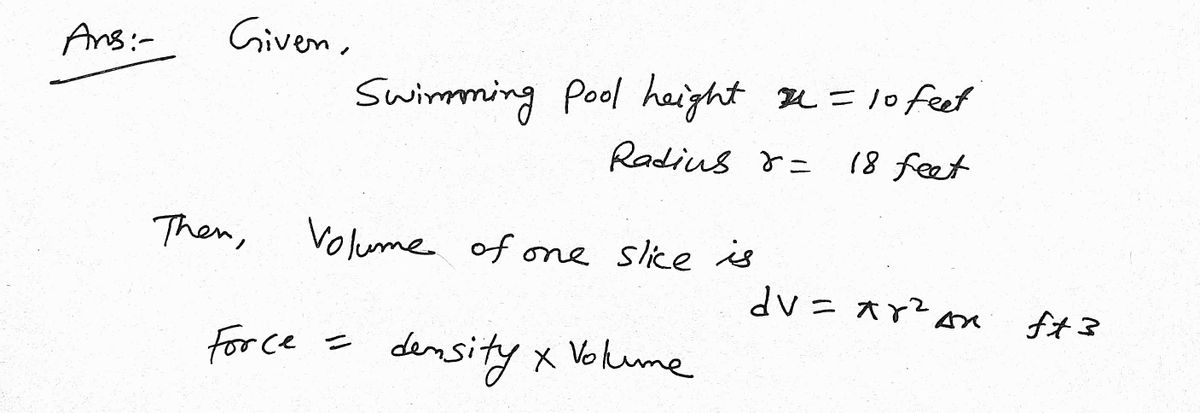 Ans:- Given,
Swimming Pool height x = 10 feet
Radius r = 18 feet
Then, Volume of one slice is
dV = πr² Δx ft3
Force = density x Volume